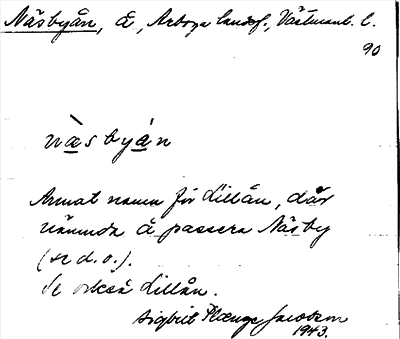 Näsbyån, å, Arboga landsf., Västmanl. l.
90
nä̀sbyán
Annat namn för Lillån, där
nämnda å passera Näsby
(se d. o.).
Se också Lillån.
Sigbrit Plænge Jacobson
1943.